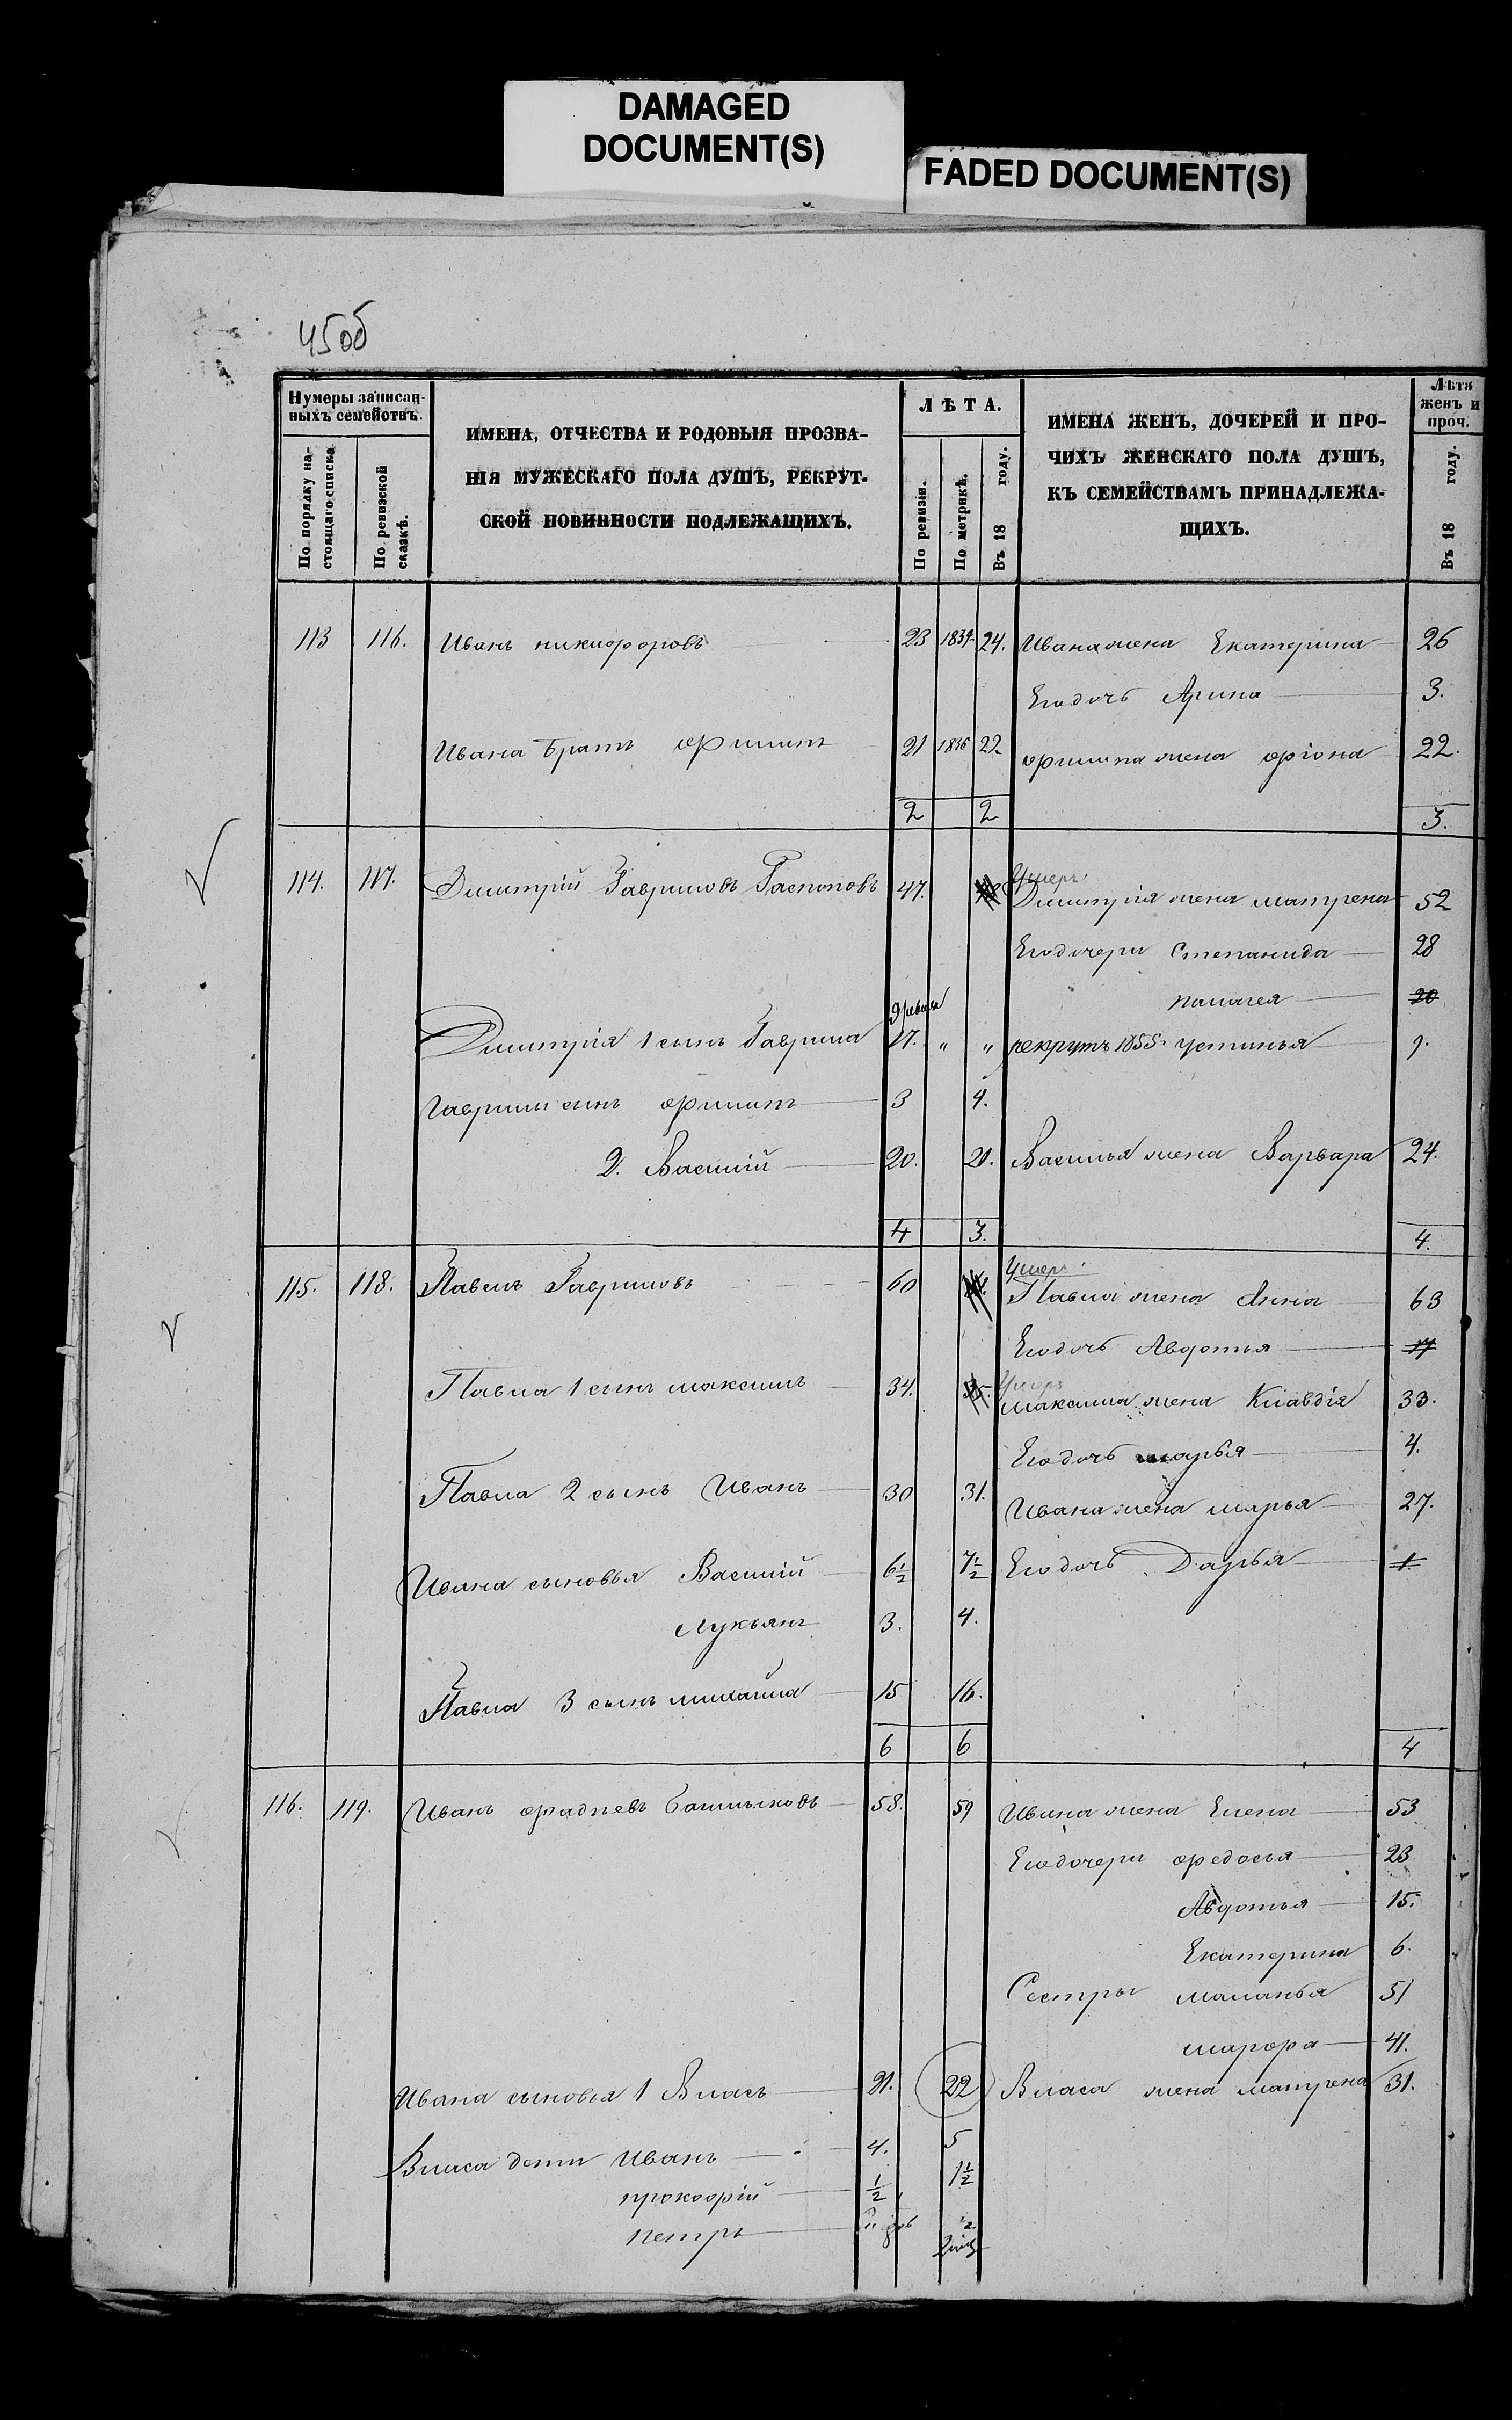 DAMAGED
DOCUMENT(S)
FADED DOCUMENT(S)
45об
Нумеры записан-
ныхъ семействъ.
По порядку на-
стоящаго списка
По ревизской
сказкѣ.
ИМЕНА, ОТЧЕСТВА И РОДОВЫЯ ПРОЗВА-
НІЯ МУЖЕСКАГО ПОЛА ДУШЪ, РЕКРУТ-
СКОЙ ПОВИННОСТИ ПОДЛЕЖАЩИХЪ.
ЛѢТА.
По ревизіи.
По метрикѣ.
Въ 18 году.
ИМЕНА ЖЕНЪ, ДОЧЕРЕЙ И ПРО-
ЧИХЪ ЖЕНСКАГО ПОЛА ДУШЪ,
КЪ СЕМЕЙСТВАМЪ ПРИНАДЛЕЖА-
ЩИХЪ.
Лѣта
женъ и
проч.
Въ 18 году.
113 116. Иванъ никифоровъ 23 24. Ивана жена Екатерина 26
Егодочь Арина 3.
Ивана братъ филипъ 21 1836 22 филипа жена фіона 22.
2 2 3.
114. 117. Дмитрій Гавриловъ Распоповъ 47. Умеръ
Дмитрія жена матрена 52
Егодочери Степанида 28
палагея 20
Дмитрія 1 сынъ Гаврила 27. " " рекрутъ 1855. устинья 9.
Гаврилы сынъ филипъ 3 4.
2. Василій 20. 21. Василья жена Варвара 24.
4 3. 4.
115. 118. Павелъ Гавриловъ 60 Умеръ
Павла жена Анна 63
Егодочь Авдотья 17
Павла 1 сынъ максимъ 34. 35. Умеръ
максима жена Клавдія 33.
Егодочь марья 4.
Павла 2 сынъ Иванъ 30 31. Ивана жена марья 27.
Ивана сыновья Василій 6½ 7½ Егодочь Дарья 1.
Лукьянъ 3. 4.
Павла 3 сынъ михайла 15 16.
6 6 4
116. 119. Иванъ фадѣевъ 58. 59 Ивана жена Елена 53
Егодочери федосья 23
Авдотья 15.
Екатерина 6.
Сестры маланья 51
марфа 41.
Ивана сыновья 1 Власъ 21. 22 Власа жена матрена 31.
Власа дети Иванъ 4. 5
прокофій ½ 1½
петръ